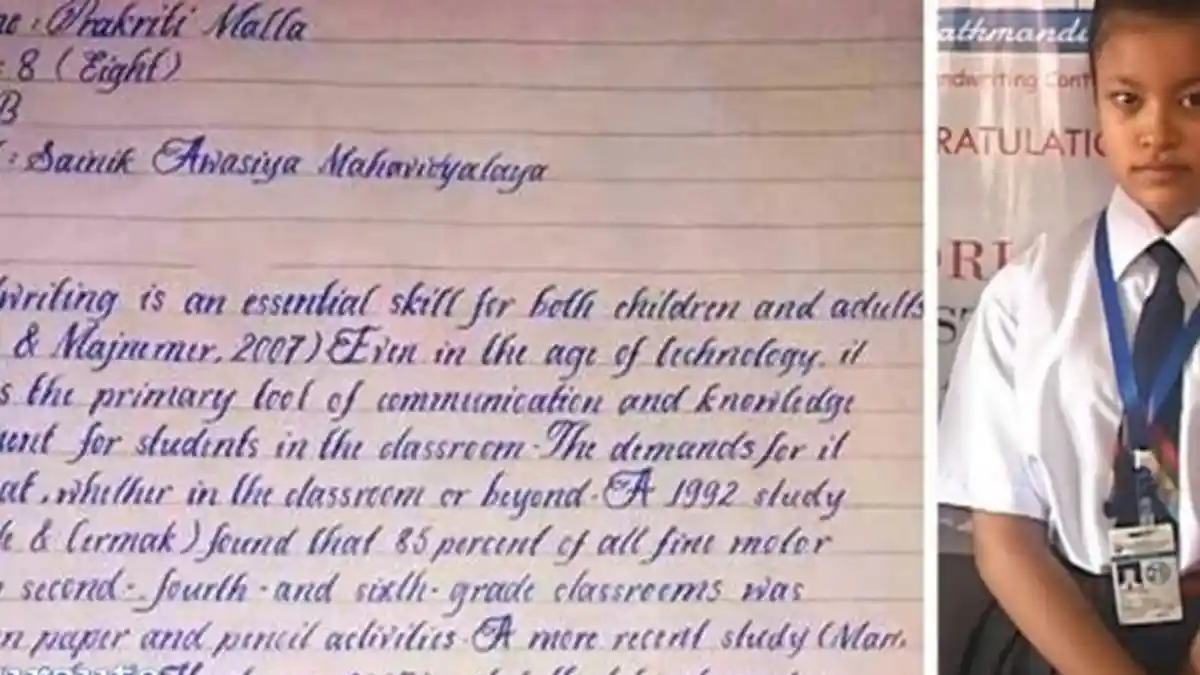 : Prakriti Malla
: 8 (Eight)
B
: Sainik Awasiya Mahavidyalaya
writing is an essential skill for both children and adults
& Majnemer, 2007) Even in the age of technology, it
s the primary tool of communication and knowledge
ment for students in the classroom. The demands for it
at, whether in the classroom or beyond. A 1992 study
& Cermak) found that 85 percent of all fine motor
second-, fourth-and sixth-grade classrooms was
n paper and pencil activities. A more recent study (Marr,
athmandu
ndwriting Cont
RATULATIO
ORL
ST